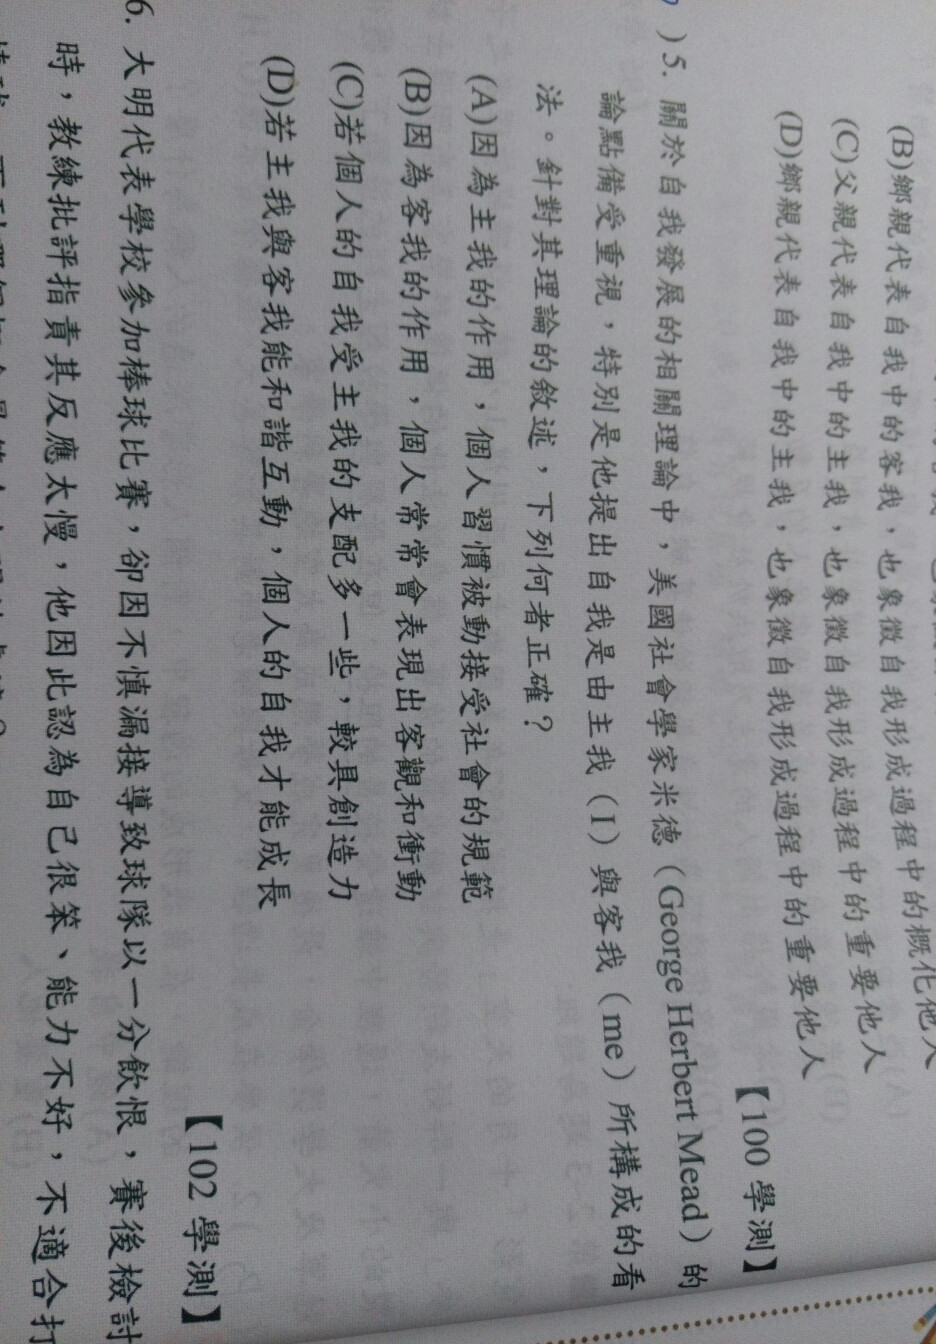 (B)鄉親代表自我中的客我，也象徵自我形成過程中的概化他人
(C)父親代表自我中的主我，也象徵自我形成過程中的重要他人
(D)鄉親代表自我中的主我，也象徵自我形成過程中的重要他人
【100 學測】
) 5. 關於自我發展的相關理論中，美國社會學家米德（George Herbert Mead）的
論點備受重視，特別是他提出自我是由主我（I）與客我（me）所構成的看
法。針對其理論的敘述，下列何者正確？
(A)因為主我的作用，個人習慣被動接受社會的規範
(B)因為客我的作用，個人常常會表現出客觀和衝動
(C)若個人的自我受主我的支配多一些，較具創造力
(D)若主我與客我能和諧互動，個人的自我才能成長
【102 學測】
6. 大明代表學校參加棒球比賽，卻因不慎漏接導致球隊以一分飲恨，賽後檢討
時，教練批評指責其反應太慢，他因此認為自己很笨、能力不好，不適合打